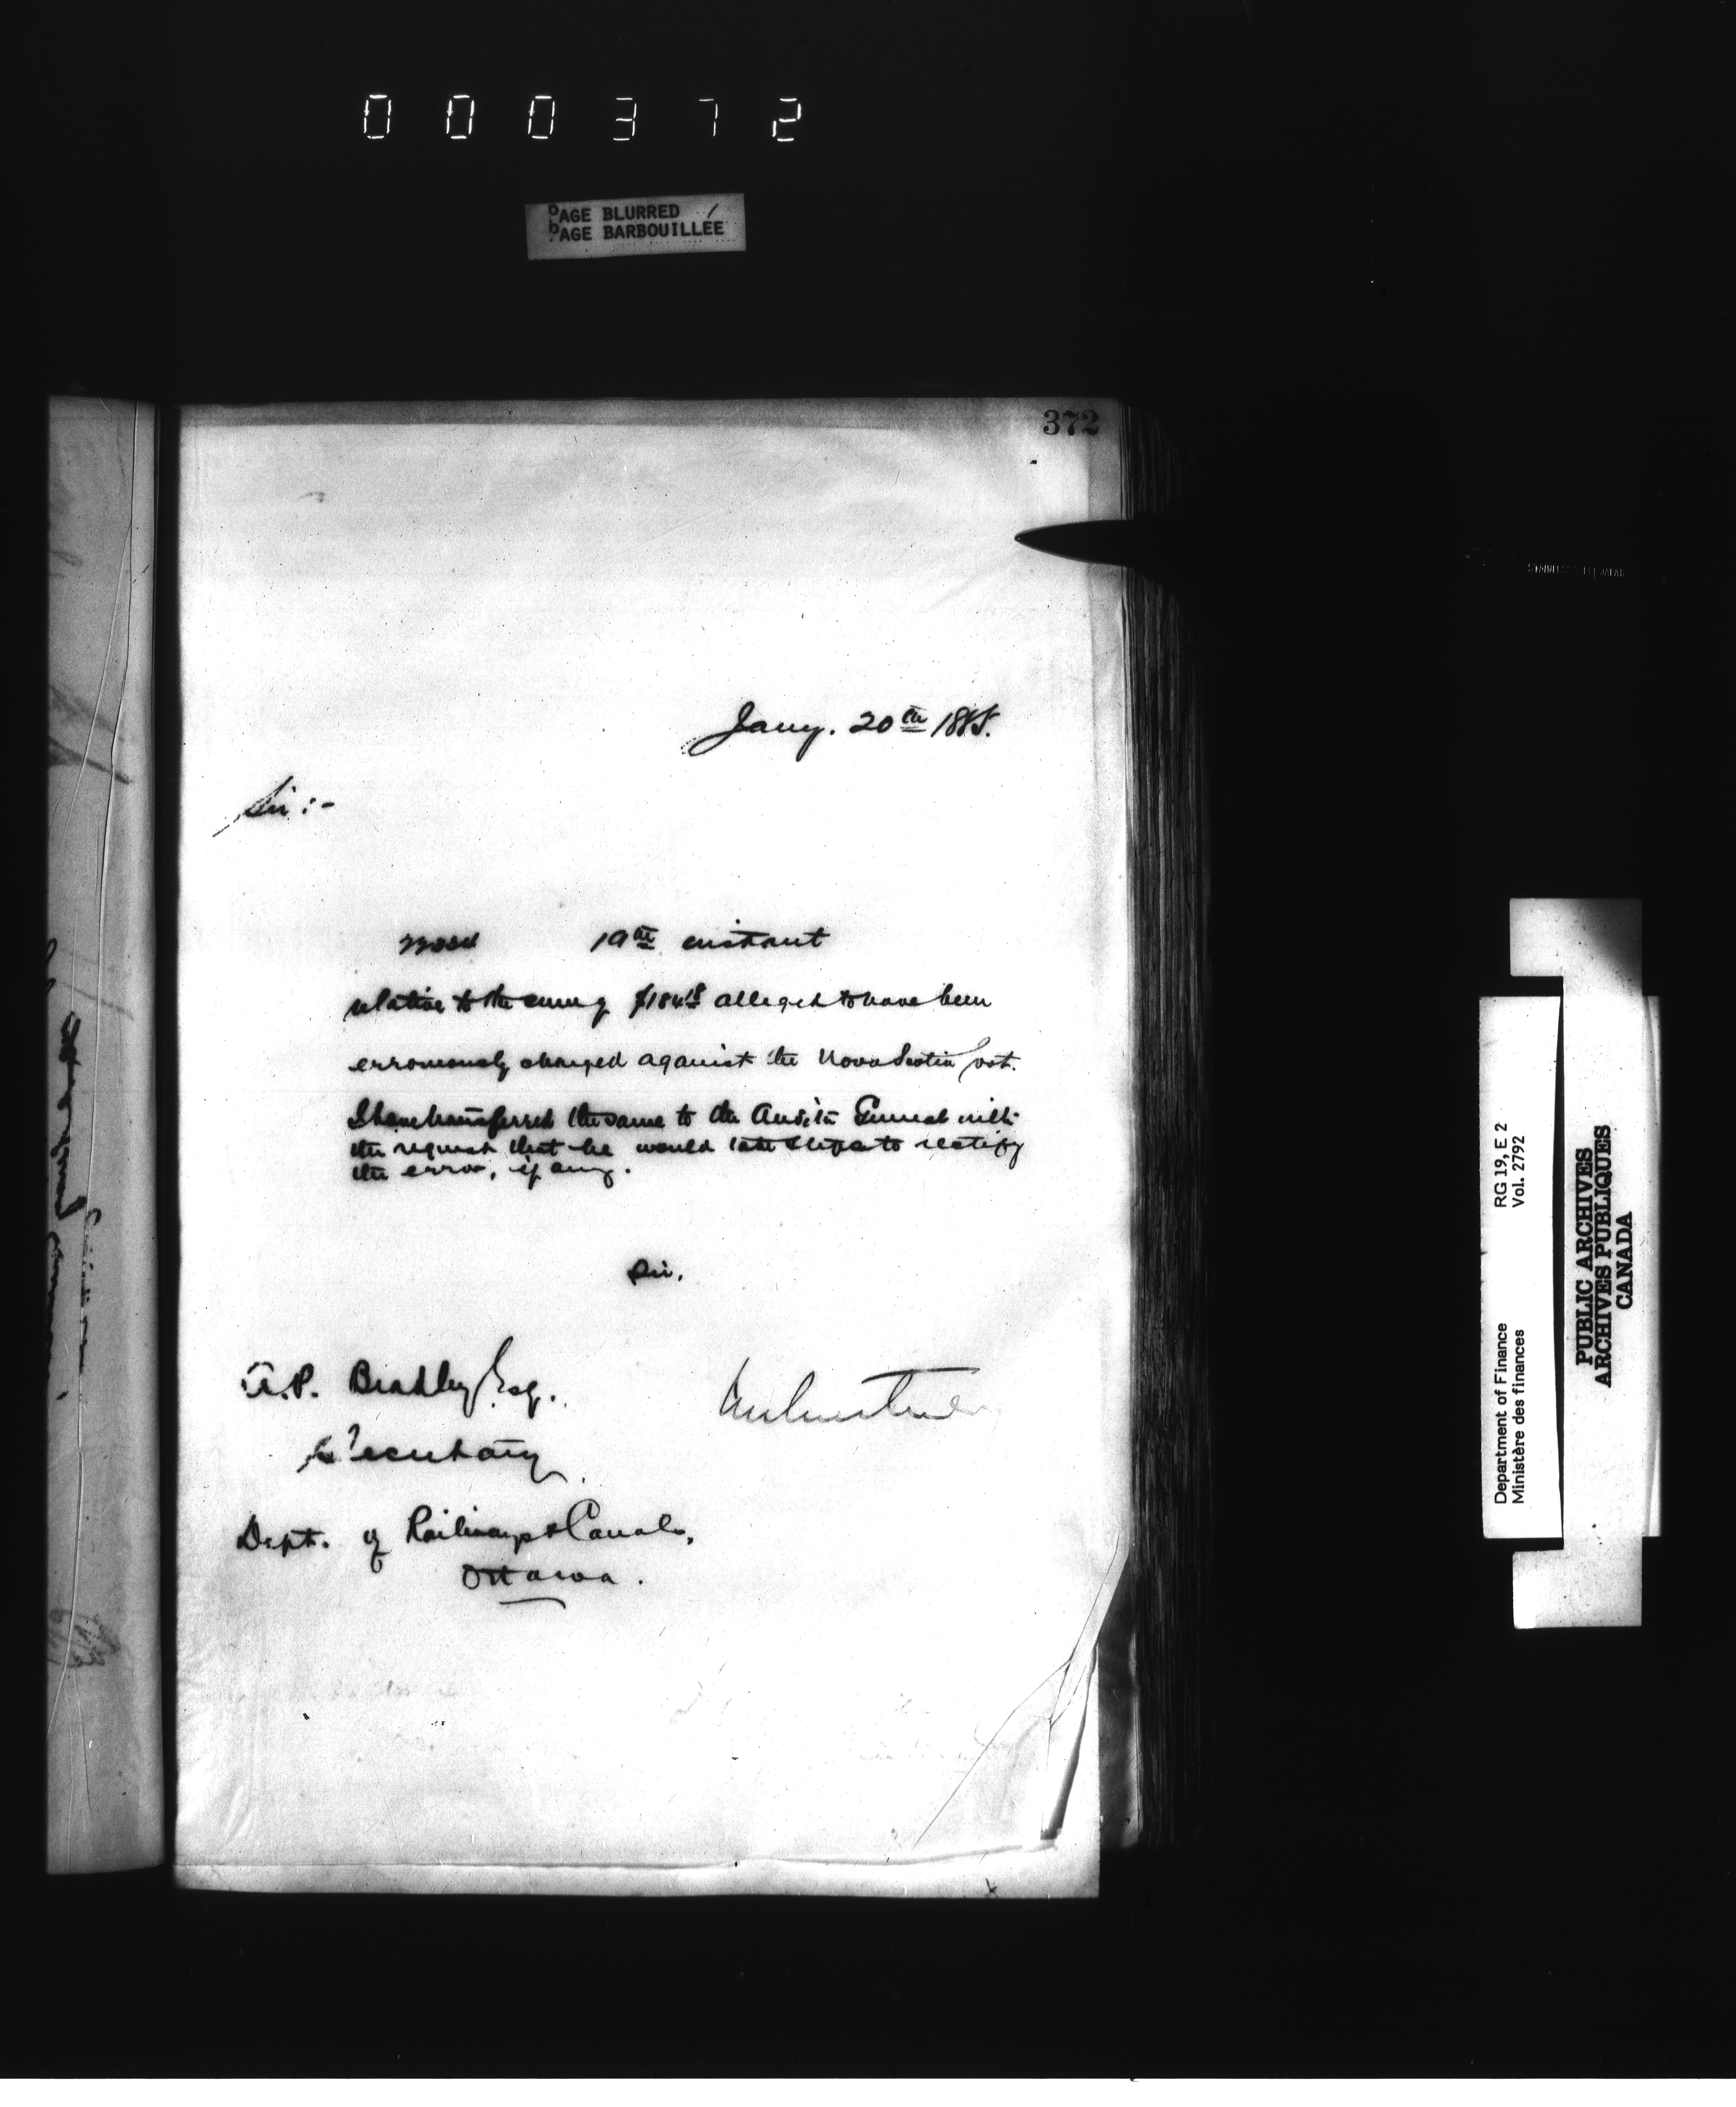 000372
PAGE BLURRED
PAGE BARBOUILLÉE
372
Jany. 20th 1885.
Sir :-
19th instant
relative to the sum of alleged to have been
erroneously charged against the Nova Scotia
I have transferred the same to the Auditor General with
the request that he would take steps to rectify
the error, if any.
Sir,
A.P. Bradley Esq.
Secretary
Dept. of Railways & Canals,
Ottawa.
Department of Finance RG 19, E 2
Ministère des finances Vol. 2792
PUBLIC ARCHIVES
ARCHIVES PUBLIQUES
CANADA